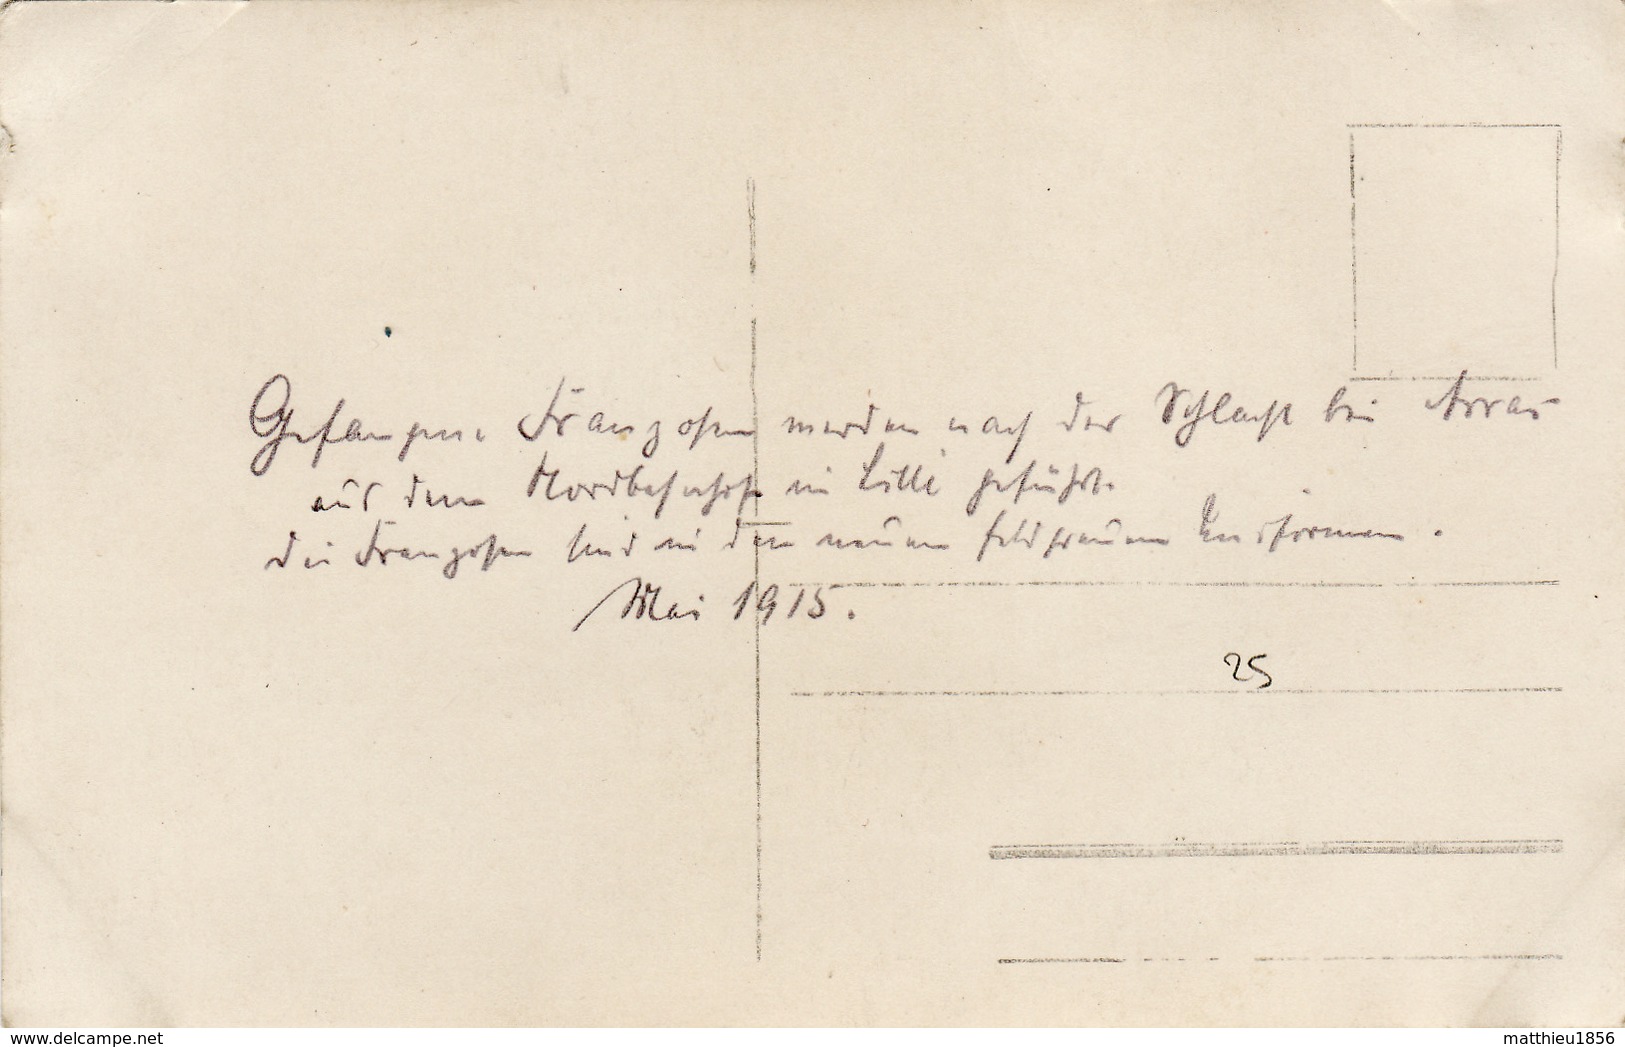 Gefangene Franzosen werden nach der Schlacht bei Arras
aus dem Nordbahnhof in Lille geführt.
Die Franzosen sind in den neuen feldgrauen Uniformen.
Mai 1915.
25
www.delcampe.net
matthieu1856